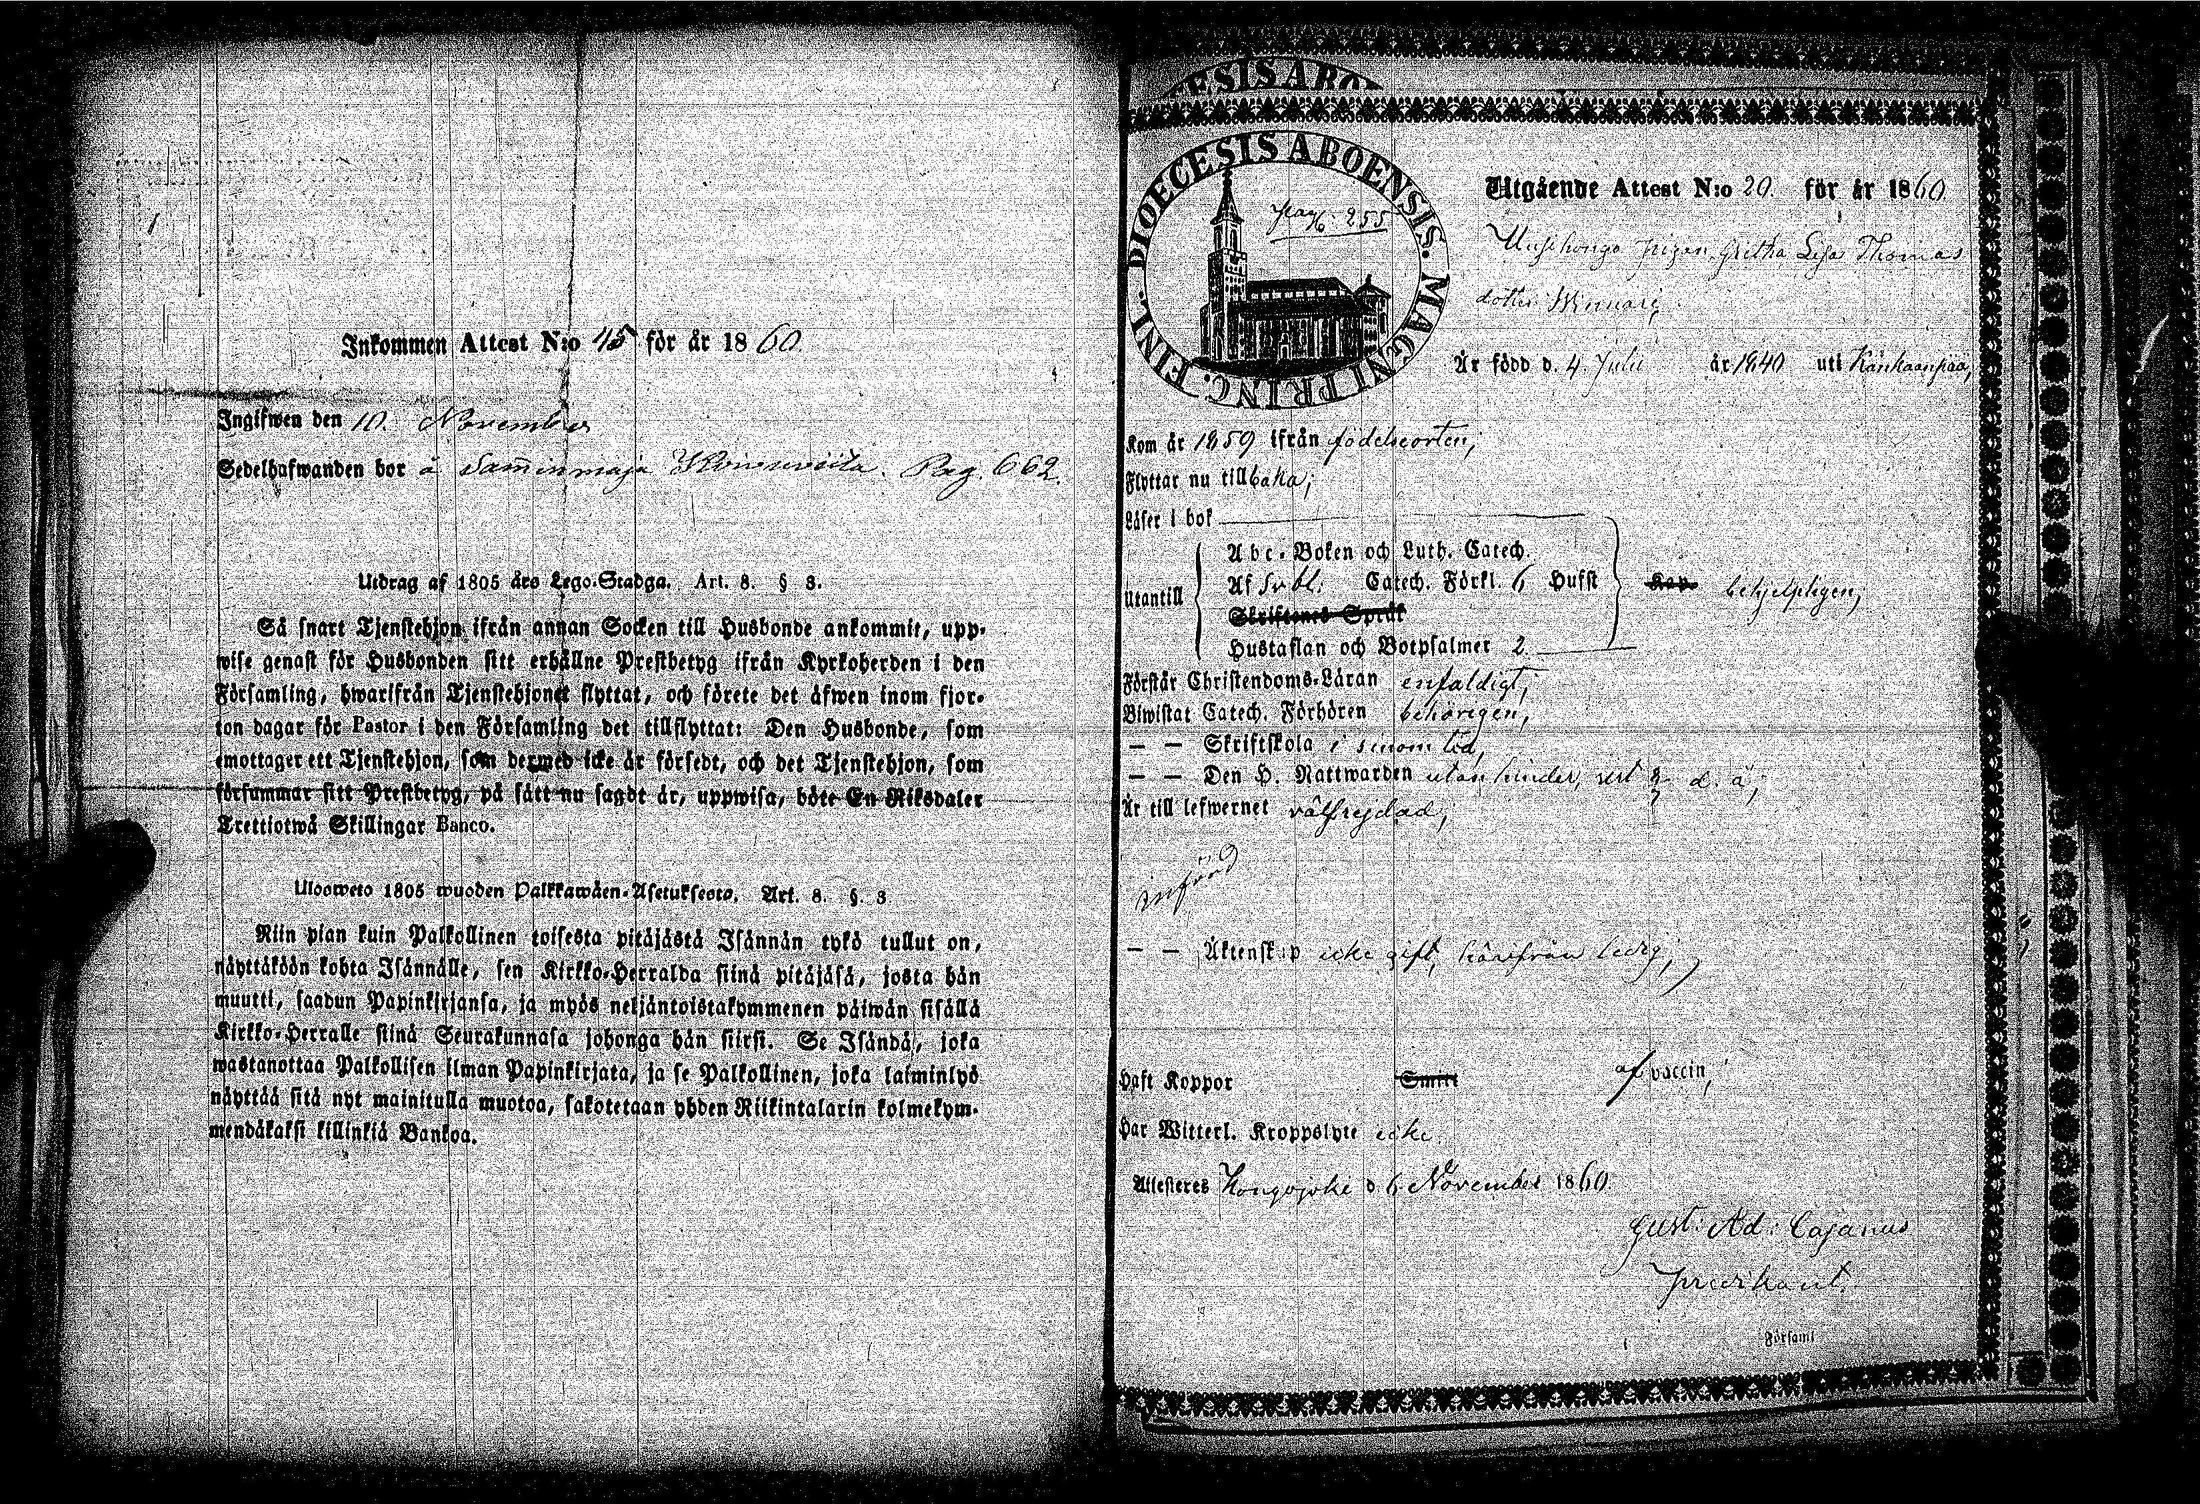 Inkommen Attest N:o 45 för år 1860
Ingifwen den 10. November
Sedelhafwanden bor å Pag. 662.
Utdrag af 1805 års Lego-Stadga. Art. 8. § 3.
Så snart Tjenstehjon ifrån annan Socken till Husbonde ankommit, upp-
wise genast för Husbonden sitt erhållne Prestbetyg ifrån Kyrkoherden i den
Församling, hwarifrån Tjenstehjonet flyttat, och förete det äfwen inom fjor-
ton dagar för Pastor i den Församling det tillflyttat: Den Husbonde, som
emottager ett Tjenstehjon, som dermed icke är försedt, och det Tjenstehjon, som
försummar sitt Prestbetyg, på sätt nu sagdt är, uppwisa, böte En Riksdaler
Trettiotwå Skillingar Banco.
Ulosweto 1805 wuoden Palkkawäen-Asetuksesta. Art. 8. §. 3
Niin pian kuin Palkollinen toisesta pitäjästä Isännän tykö tullut on,
näyttäköön kohta Isännälle, sen Kirkko-Herralda siinä pitäjäsä, josta hän
muutti, saadun Papinkirjansa, ja myös neljäntoistakymmenen päiwän sisällä
Kirkko-Herralle siinä Seurakunnasa johonga hän siirsi. Se Isändä, joka
wastanottaa Palkollisen ilman Papinkirjata, ja se Palkollinen, joka laiminlyö
näyttää sitä nyt mainitulla muotoa, sakotetaan yhden Riikintalarin kolmekym-
mendäkaksi killinkiä Bankoa.
DIOECESIS ABO
DIOECESIS ABOENSIS. MAGNI PRINC. FINL.
pag. 255
Utgående Attest N:o 20. för år 1860.
pigan Gretha Lisa Thomas
dotter
Är född d. 4. Julii år 1840 uti Kankaanpää,
Kom år 1859 ifrån födelseorten;
Flyttar nu tillbaka;
Läser i bok
Abc-Boken och Luth. Catech.
Utantill Af Sv bl. Catech. Förkl. 6 Hufst behjelpligen,
Skriftenes Språk
Hustaflan och Botpsalmer 2.
Förstår Christendoms-Läran enfaldigt;
Biwistat Catech. Förhören behörigen,
— — Skriftskola i sinom tid,
— — Den H. Nattwarden utan hinder, sist d. å;
Är till lefwernet välfrejdad,
införd
— — Äktenskap icke gift, härifrån ledig;
Haft Koppor Smitt af vaccin,
Har Witterl. Kroppslyte icke
Attesteras Hongojoki d. 6 November 1860.
Gust: Ad: Cajanus
Församl